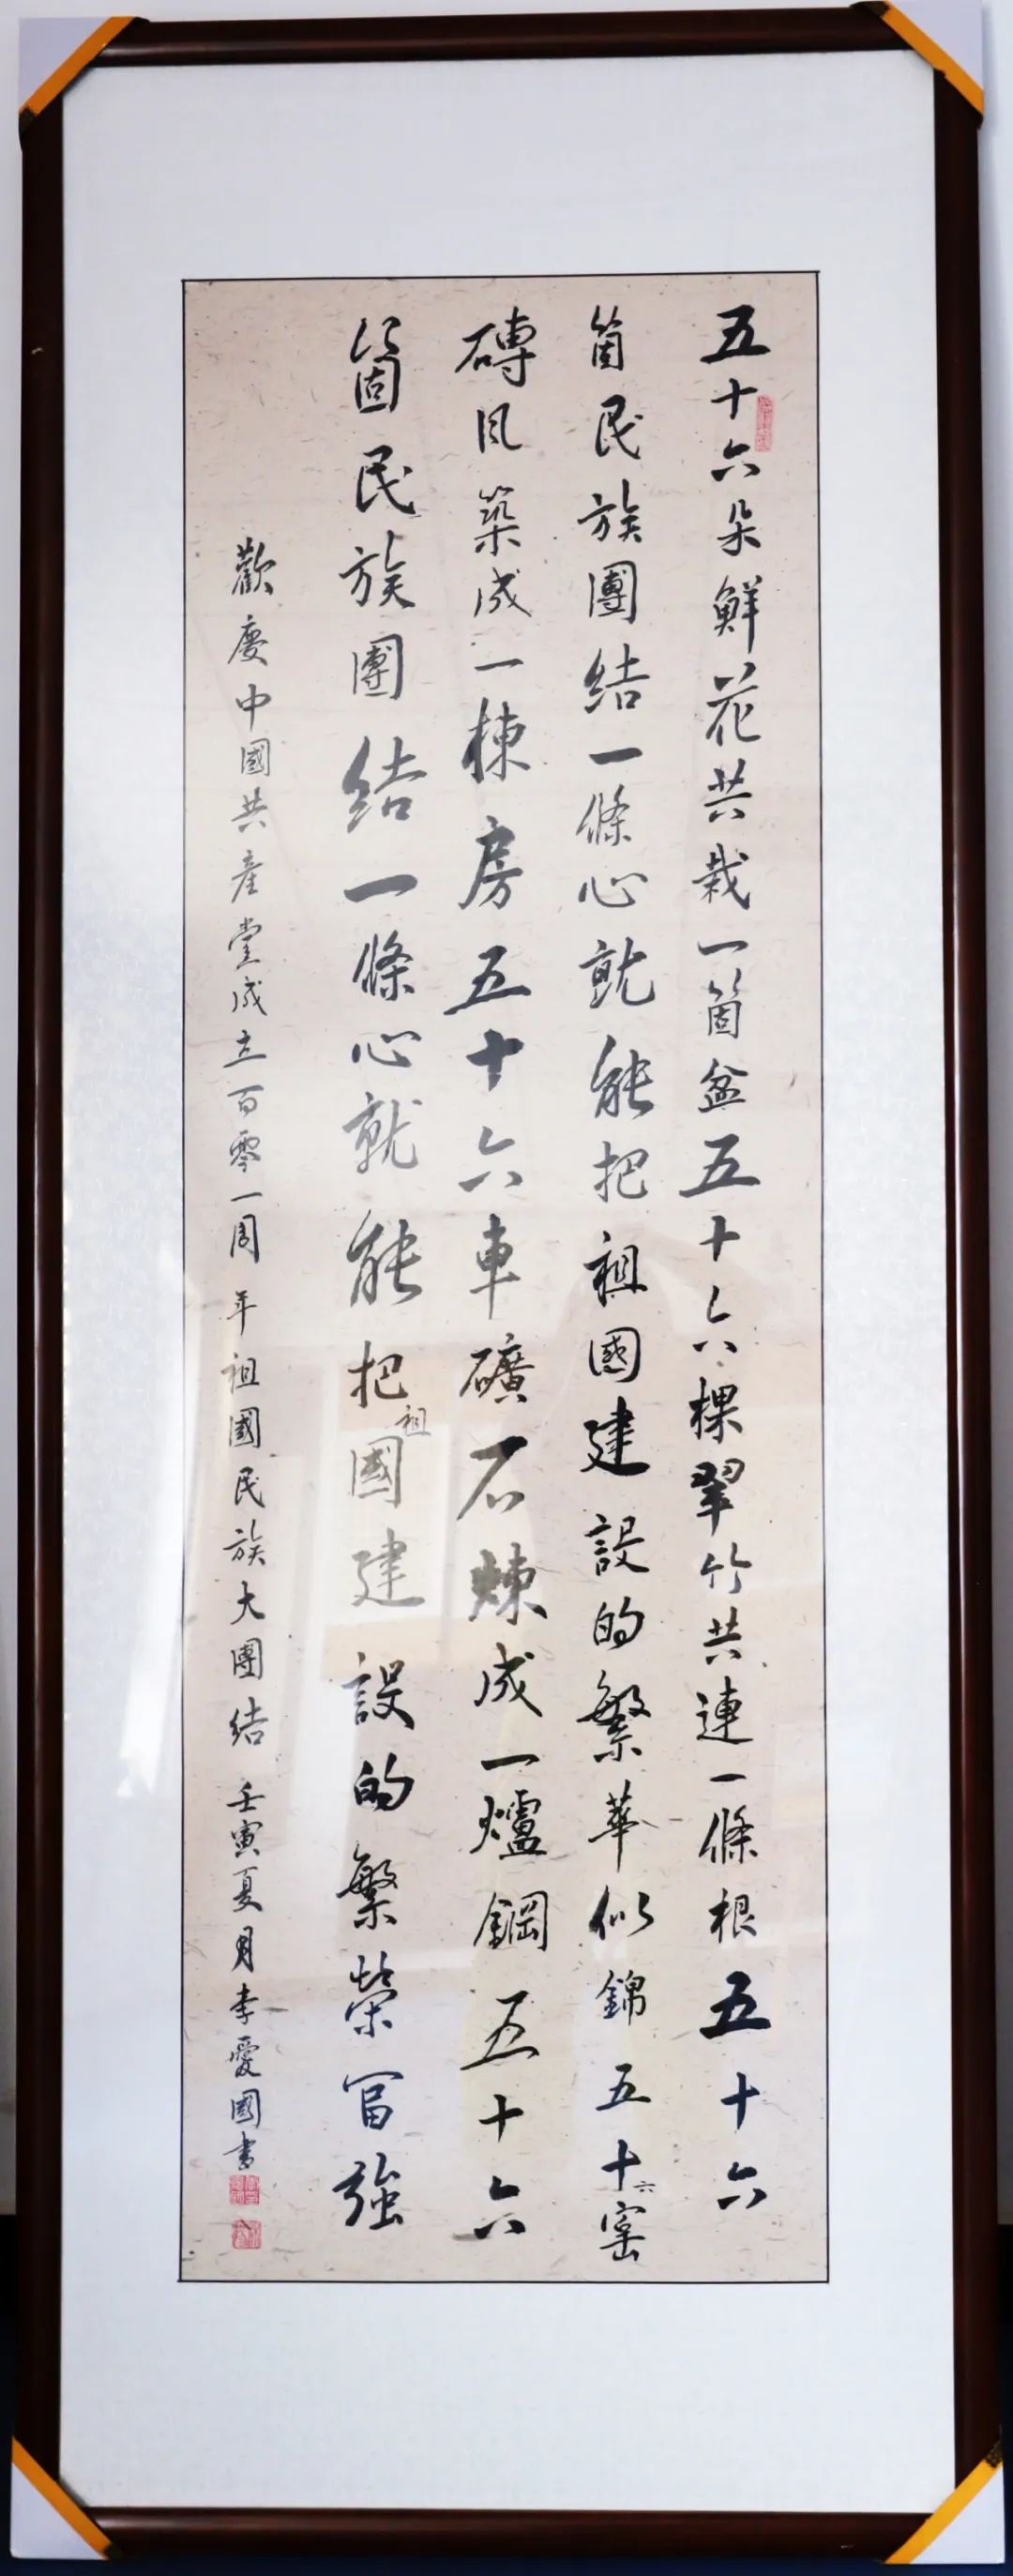 五十六朵鮮花共栽一箇盆五十六棵翠竹共連一條根五十六
箇民族團結一條心就能把祖國建設的繁華似錦五十六窰
磚瓦築成一棟房五十六車礦石煉成一爐鋼五十六
箇民族團結一條心就能把祖國建設的繁榮富強
歡慶中國共產堂成立百零一周年祖國民族大團結壬寅夏月李愛國書